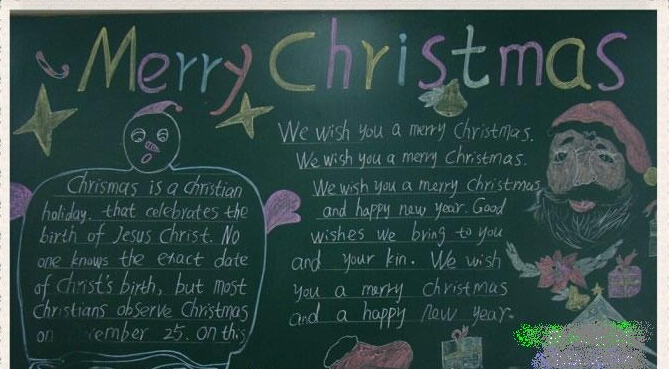 Merry Christmas
Chrismas is a christian
holiday. that celebrates the
birth of Jesus Christ. No
one knows the exact date
of Christ's birth, but most
Christians observe Christmas
on vember 25. on this
We wish you a merry Christmas.
We wish you a merry Christmas.
We wish you a merry christmas
and happy new year. Good
wishes we bring to you
and your kin. We wish
you a merry christmas
and a happy new year.